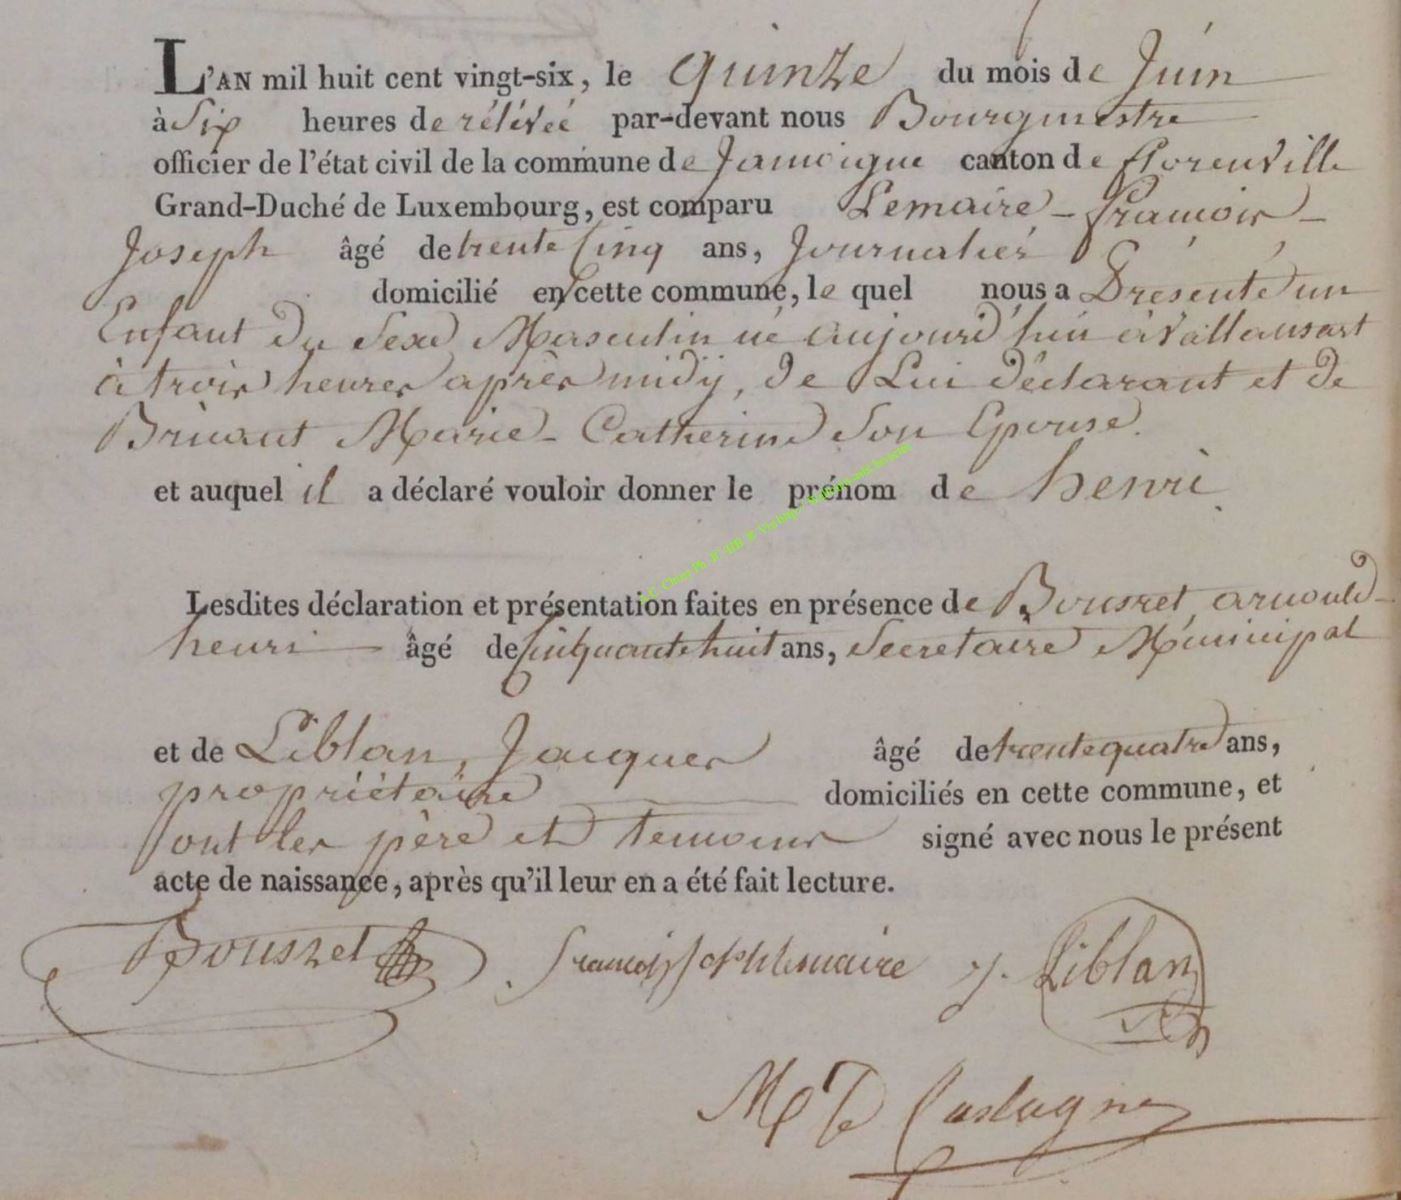 L'AN mil huit cent vingt-six, le quinze du mois de Juin
à Six heures de rélévéé par-devant nous Bourgmestre
officier de l'état civil de la commune de Jamoigne canton de florenville
Grand-Duché de Luxembourg, est comparu Lemaire - francois -
Joseph âgé de trente Cinq ans, Journalier
domicilié en cette commune, le quel nous a Présenté un
Enfant du Sexe Masculin né aujourd'hui à Vallansart
à trois heures après midÿ, de Lui déclarant et de
Bruant Marie - Catherine Son Epouse.
et auquel il a déclaré vouloir donner le prénom de henri
Lesdites déclaration et présentation faites en présence de Bousret, arnould -
henri âgé de Cinquante huit ans, Secretaire Municipal
et de Liblan, Jacques âgé de trente quatre ans,
propriétaire domiciliés en cette commune, et
ont les père et temoins signé avec nous le présent
acte de naissance, après qu'il leur en a été fait lecture.
Bousret francois Joseph lemaire J. Liblan